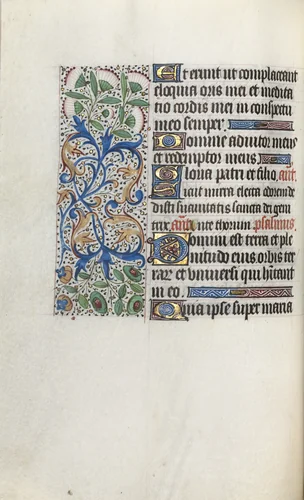 Et erunt ut complaceant
eloquia oris mei et medita
tio cordis mei in conspectu
meo semper.
Domine adiutor meus
et redemptor meus.
Gloria patri et filio. ant.
Sicut mirra electa odorem de
disti suavitatis sancta dei geni
trix. ant. psalmus.
Domini est terra et ple
nitudo eius orbis ter
rar et universi qui habitant
in eo.
Quia ipse super maria